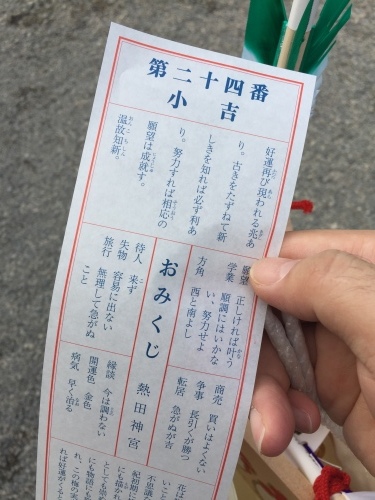 第二十四番
小吉
好運再び現われる兆あ
り。古きをたずねて新
しきを知れば必ず利あ
り。努力すれば相応の
願望は成就す。
温故知新。
願望 正しければ叶う
学業 順調にはいかな
い、努力せよ
方角 西と南よし
おみくじ
待人 来ず
失物 容易に出ない
旅行 無理して急がぬ
こと
商売 買いはよくない
争事 長引くが勝つ
転居 急がぬが吉
熱田神宮
縁談 今は調わない
開運色 金色
病気 早く治る